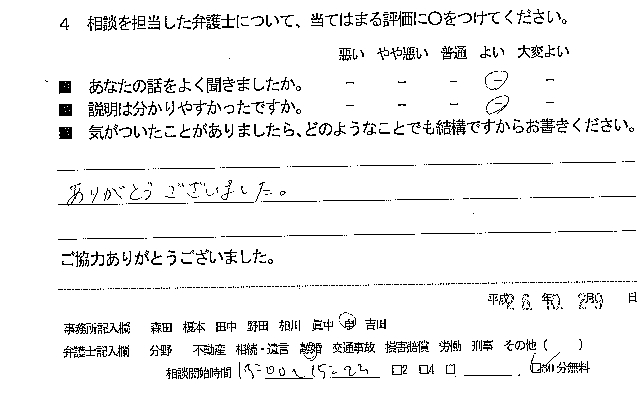 4 相談を担当した弁護士について、当てはまる評価に〇をつけてください。
悪い やや悪い 普通 よい 大変よい
■ あなたの話をよく聞きましたか。 － － － － －
■ 説明は分かりやすかったですか。 － － － － －
■ 気がついたことがありましたら、どのようなことでも結構ですからお書きください。
ありがとうございました。
ご協力ありがとうございました。
平成26年10月29日
事務所記入欄 森田 榎本 田中 野田 相川 眞中 申 吉田
弁護士記入欄 分野 不動産 相続・遺言 離婚 交通事故 損害賠償 労働 刑事 その他（ ）
相談開始時間 15:00~15:23 □2 □4 □ . □30分無料